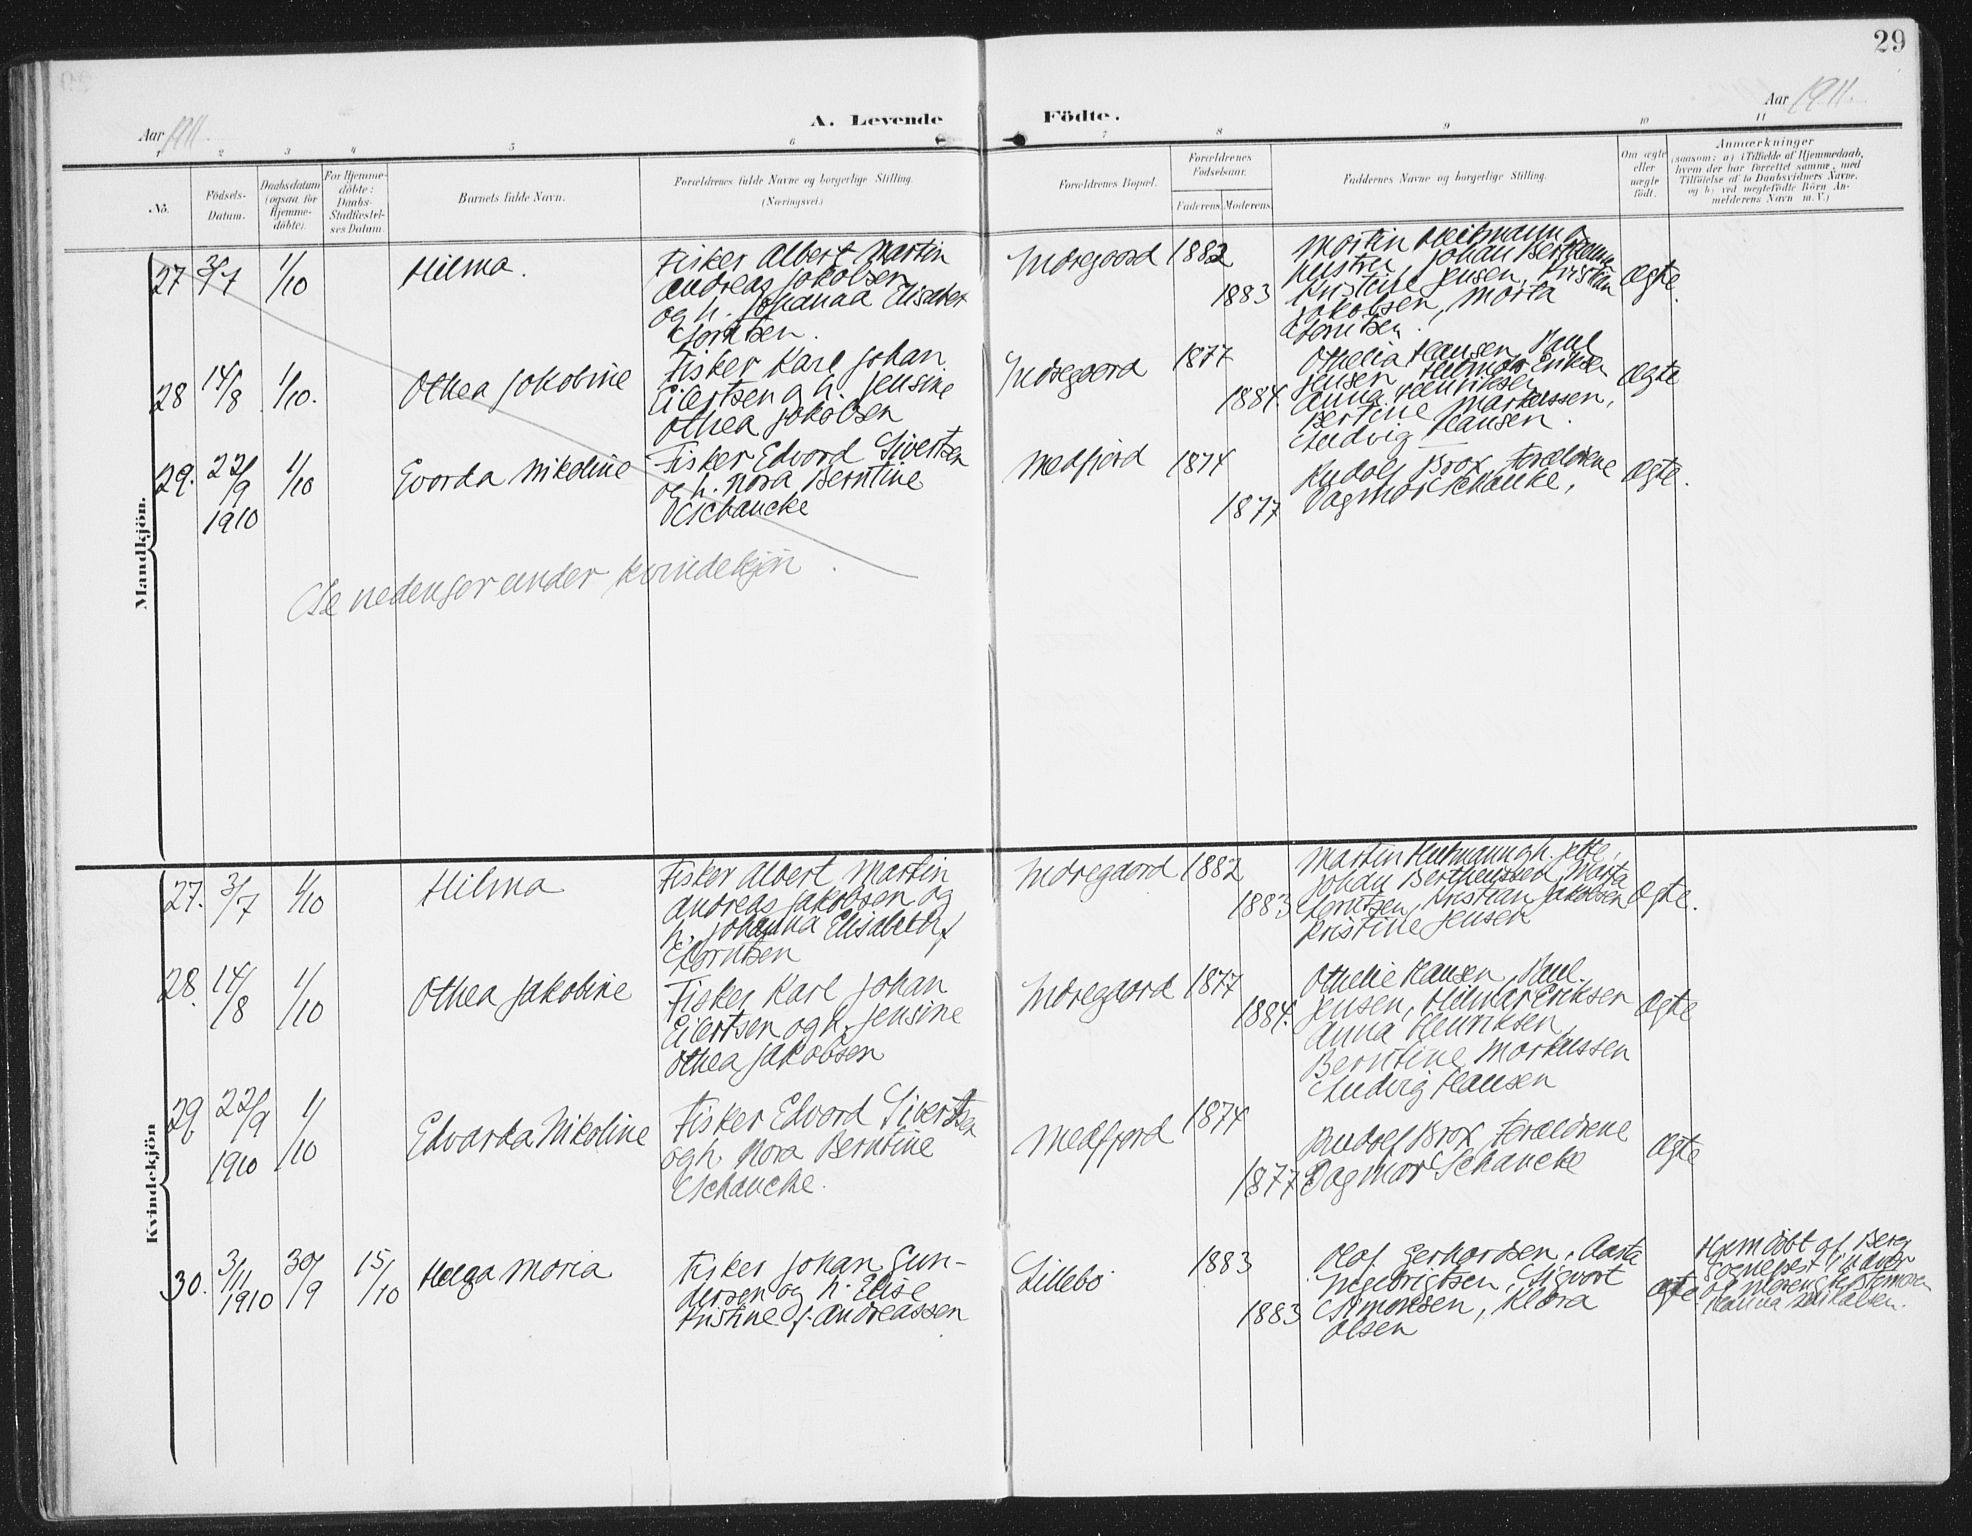 29
Aar 1911.
A. Levende Födte.
Aar 1911.
1 2 3 4 5 6 7 8 9 10 11
No.
Födsels-
Datum.
Daabsdatum
(ogsaa for
Hjemme-
döbte).
For Hjemme-
döbte:
Daabs-
Stadfæstel-
ses Datum.
Barnets fulde Navn.
Forældrenes fulde Navne og borgerlige Stilling.
(Næringsvei.)
Forældrenes Bopæl.
Forældrenes
Födselsaar.
Faderens. Moderens.
Faddernes Navne og borgerlige Stilling.
Om ægte
eller
uægte
födt.
Anmærkninger
(saasom: a) i Tilfælde af Hjemmedaab,
hvem der har forrettet samme, med
Tilföielse af to Daabsvidners Navne.
og b) ved uægtefödte Börn An-
melderens Navn m. V.)
Mandkjön.
27 3/7 1/10
Hilma.
Fisker Albert Martin
Andreas Jakobsen
og h. Johanna Elisabet
Lorntsen.
Indregaard 1882
1883
Martin
Hustru Johan
Kristine Jensen, Kristian
Jakobsen, Marta
Lorntsen.
Ægte.
28 14/8 1/10.
Othea Jakobine
Fisker Karl Johan
Eilertsen og h. Jensine
Othea Jakobsen
Indregaard 1877
1884.
Othelia Hansen, Paul
Jensen Hilmar Eriksen
Anna Henriksen
Bertine Markussen,
Ludvig Hansen.
Ægte
29. 22/9 1910 1/10
Evarda Nikoline
Fisker Edvard Sivertsen
og h. Nora Berntine
Schancke
Medfjord 1874
1877
Rudolf Brox, Forældrene
Dagmar Schanke,
Ægte.
Se nedenfor under kvindekjön.
Kvindekjön
27. 3/7 1/10
Hilma
Fisker Albert Martin
Andreas Jakobsen og
h. Johanna Elisabeth f
Lorntsen
Indregaard 1882
1883
Martin h. Jette,
Johan Marta
Lorntsen, Kristian Jakobsen
Kristine Jensen
Ægte.
28. 14/8 1/10
Othea Jakobine
Fisker Karl Johan
Eilertsen og h. Jensine
Othea Jakobsen
Indregaard 1877
1884.
Othelie Hansen, Paul
Jensen, Hilmar Eriksen
Anna Henriksen
Berntine Markussen
Ludvig Hansen
Ægte
29. 22/9 1910 1/10
Edvarda Nikoline
Fisker Edvard Sivertsen
og h. Nora Berntine
Schancke.
Medfjord 1874
1877
Rudolf Brox, Forældrene
Dagmar Schancke
Ægte
30. 3/11 1910 30/9 15/10
Helga Maria
Fisker Johan Gun-
dersen og h. Elise
Kristine f. Andreassen
Lillebö 1883
1883
Olaf Gerhardsen, Aasta
Ingebrigtsen, Sigvart
Simonsen, Klara
Olsen
Ægte.
Hjemdöbt af Berg
Sogneprest i nærvær
af
Hanna Mikalsen.